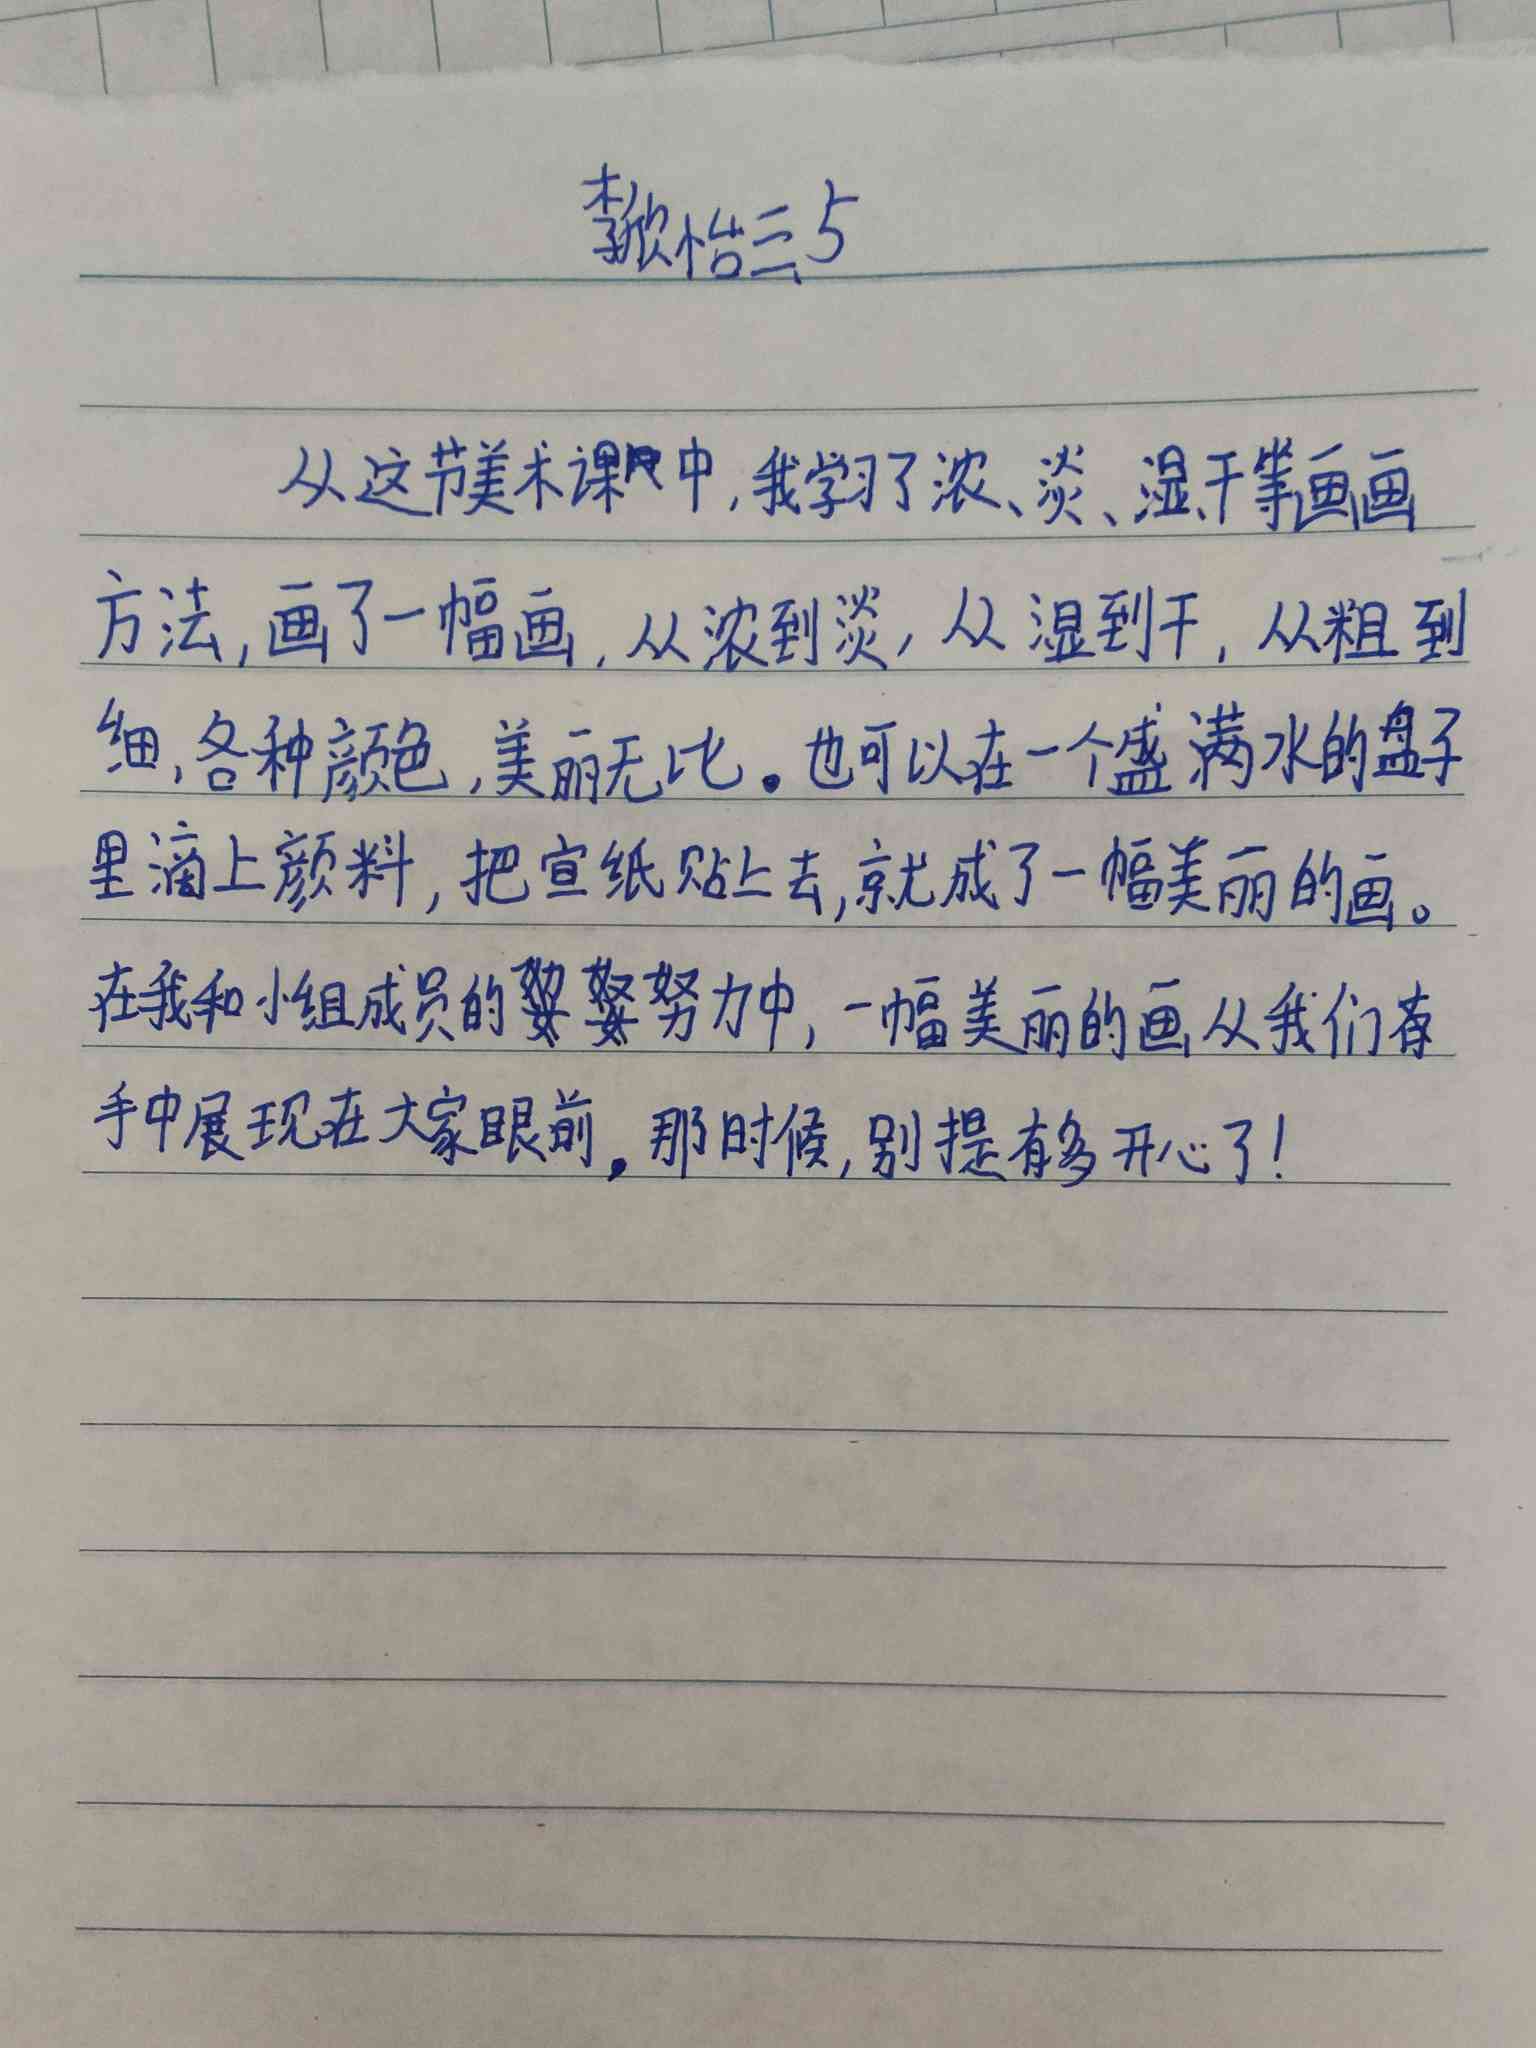 李欣怡三、5
从这节美术课中,我学习了浓、淡、湿、干等画画
方法,画了一幅画,从浓到淡,从湿到干,从粗到
细,各种颜色,美丽无比。也可以在一个盛满水的盘子
里滴上颜料,把宣纸贴上去,就成了一幅美丽的画。
在我和小组成员的努力中,一幅美丽的画从我们
手中展现在大家眼前。那时候,别提有多开心了!